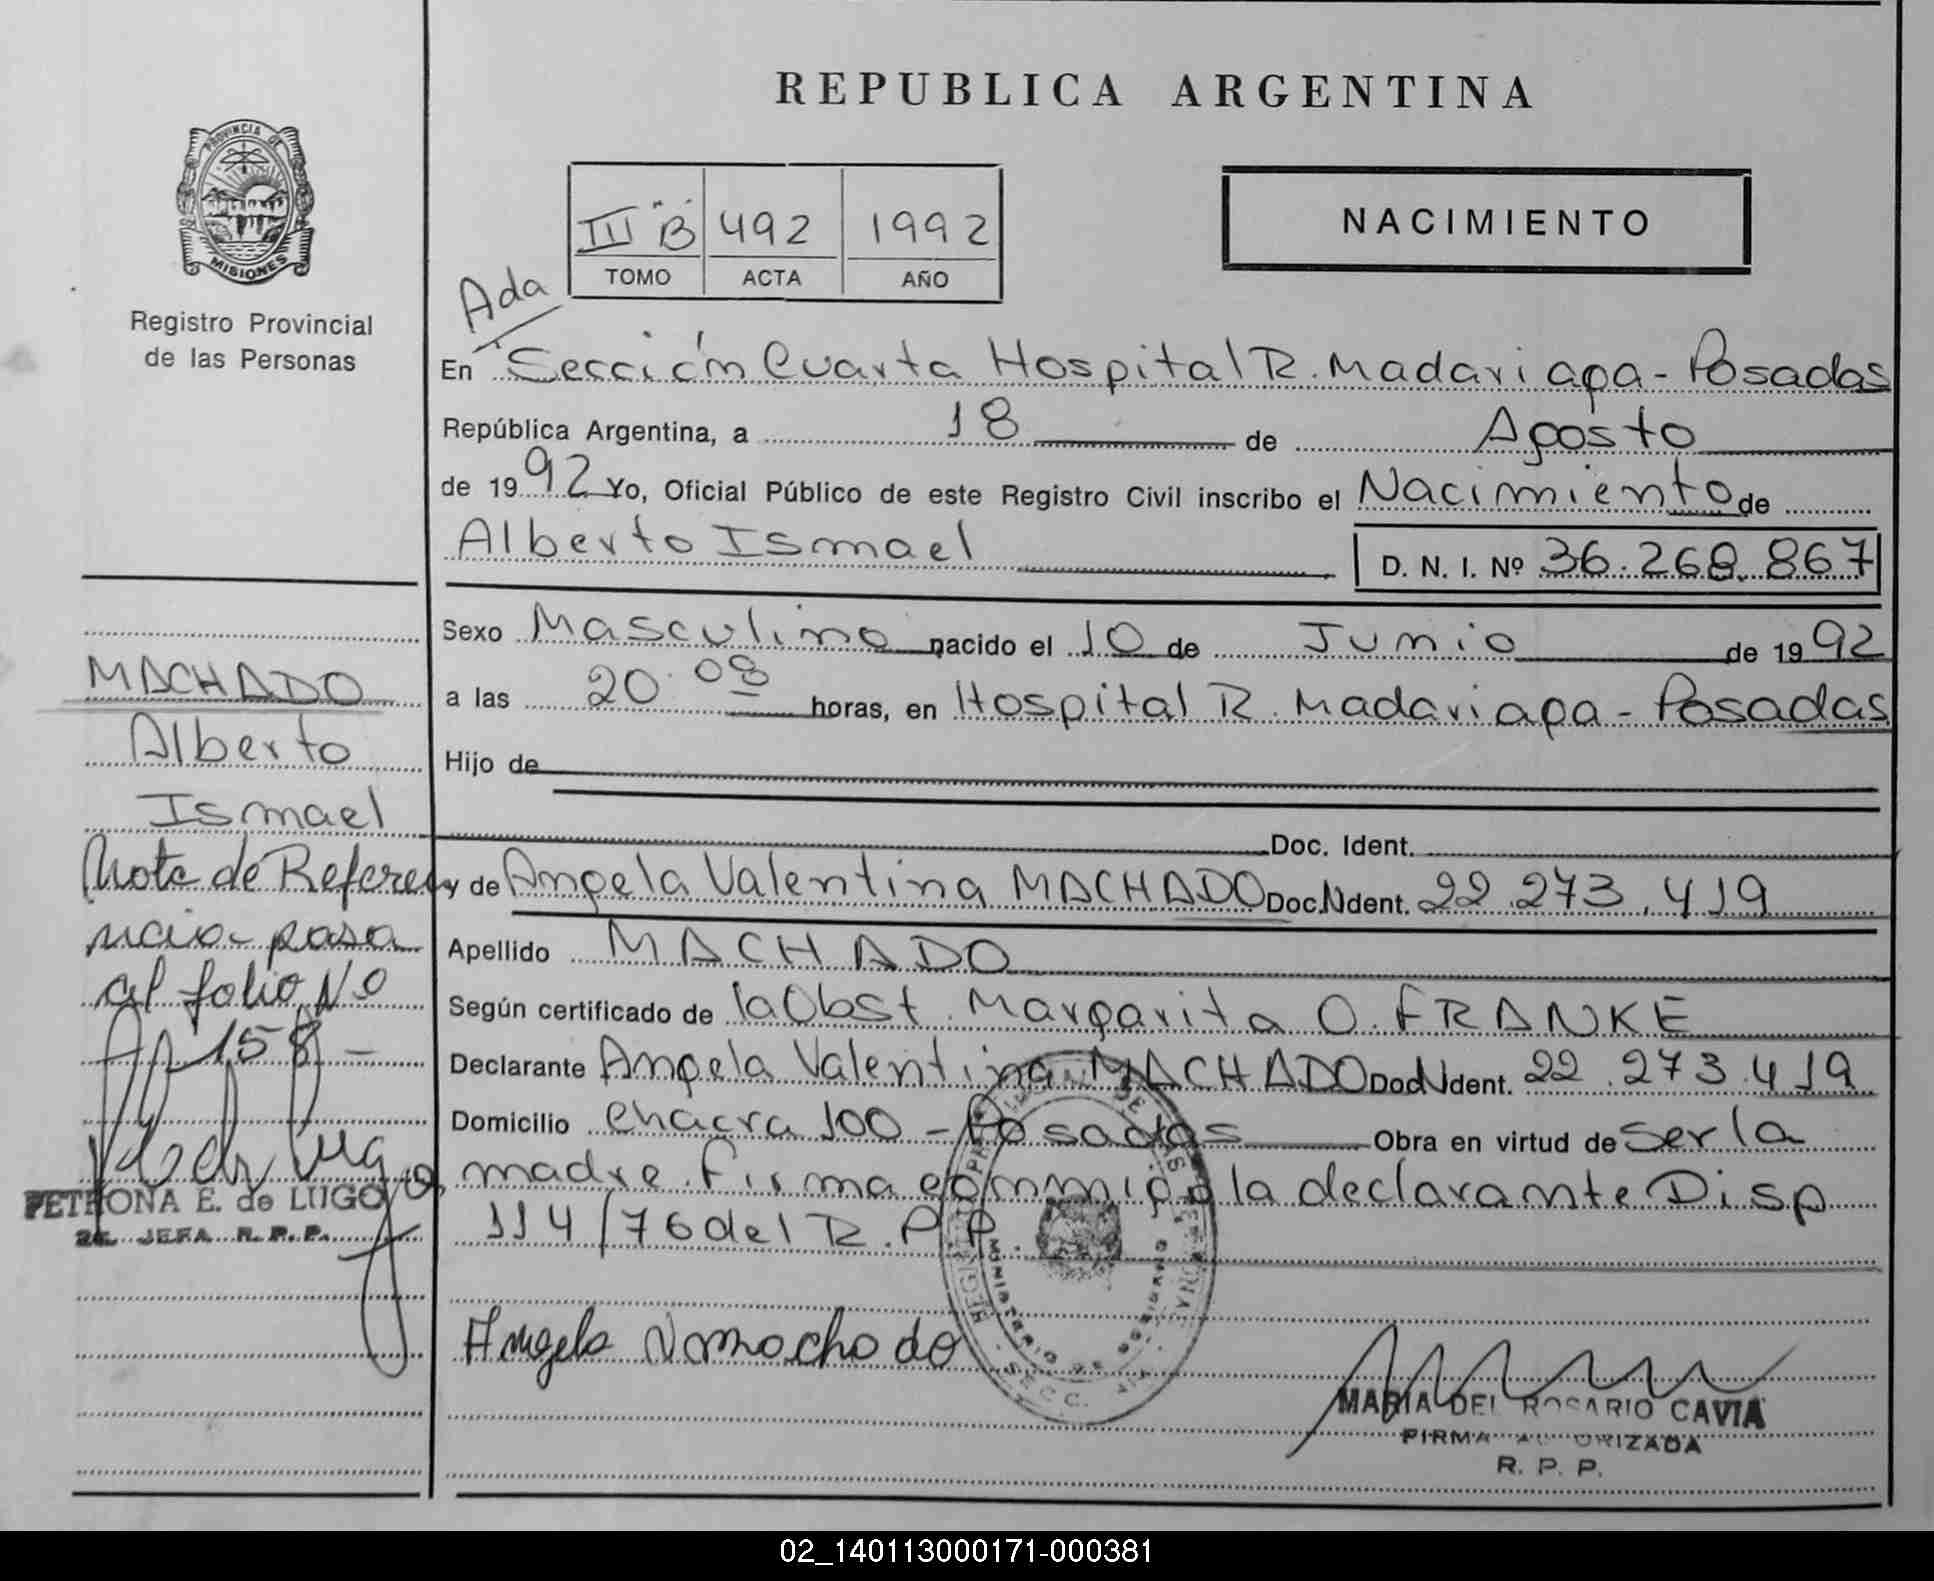 REPUBLICA ARGENTINA
PROVINCIA DE
MISIONES
Registro Provincial
de las Personas
III "B" 492 1992
TOMO ACTA AÑO
NACIMIENTO
Ada
En Sección Cuarta Hospital R. Madariaga - Posadas
República Argentina, a 18 de Agosto
de 1992 Yo, Oficial Público de este Registro Civil inscribo el Nacimiento de
Alberto Ismael D. N. I. Nº 36.268.867
Sexo Masculino nacido el 10 de Junio de 1992
a las 20.08 horas, en Hospital R. Madariaga - Posadas
Hijo de
Doc. Ident.
y de Angela Valentina MACHADO Doc. N Ident. 22.273.419
Apellido MACHADO
Según certificado de la Obst. Margarita O. FRANKE
Declarante Angela Valentina MACHADO Doc N Ident. 22.273.419
Domicilio Chacra 100 - Posadas Obra en virtud de Ser la
madre. Firma conmigo la declarante Disp
114/76 del R.P.P.
Angela V Machado
MARIA DEL ROSARIO CAVIA
FIRMA AUTORIZADA
R. P. P.
MACHADO
Alberto
Ismael
Nota de Referen
ncia pasa
al folio Nº
158 -
PETRONA E. de LUGO
JEFA R.P.P.
MINISTERIO DE GOBIERNO
SECC.
02_140113000171-000381